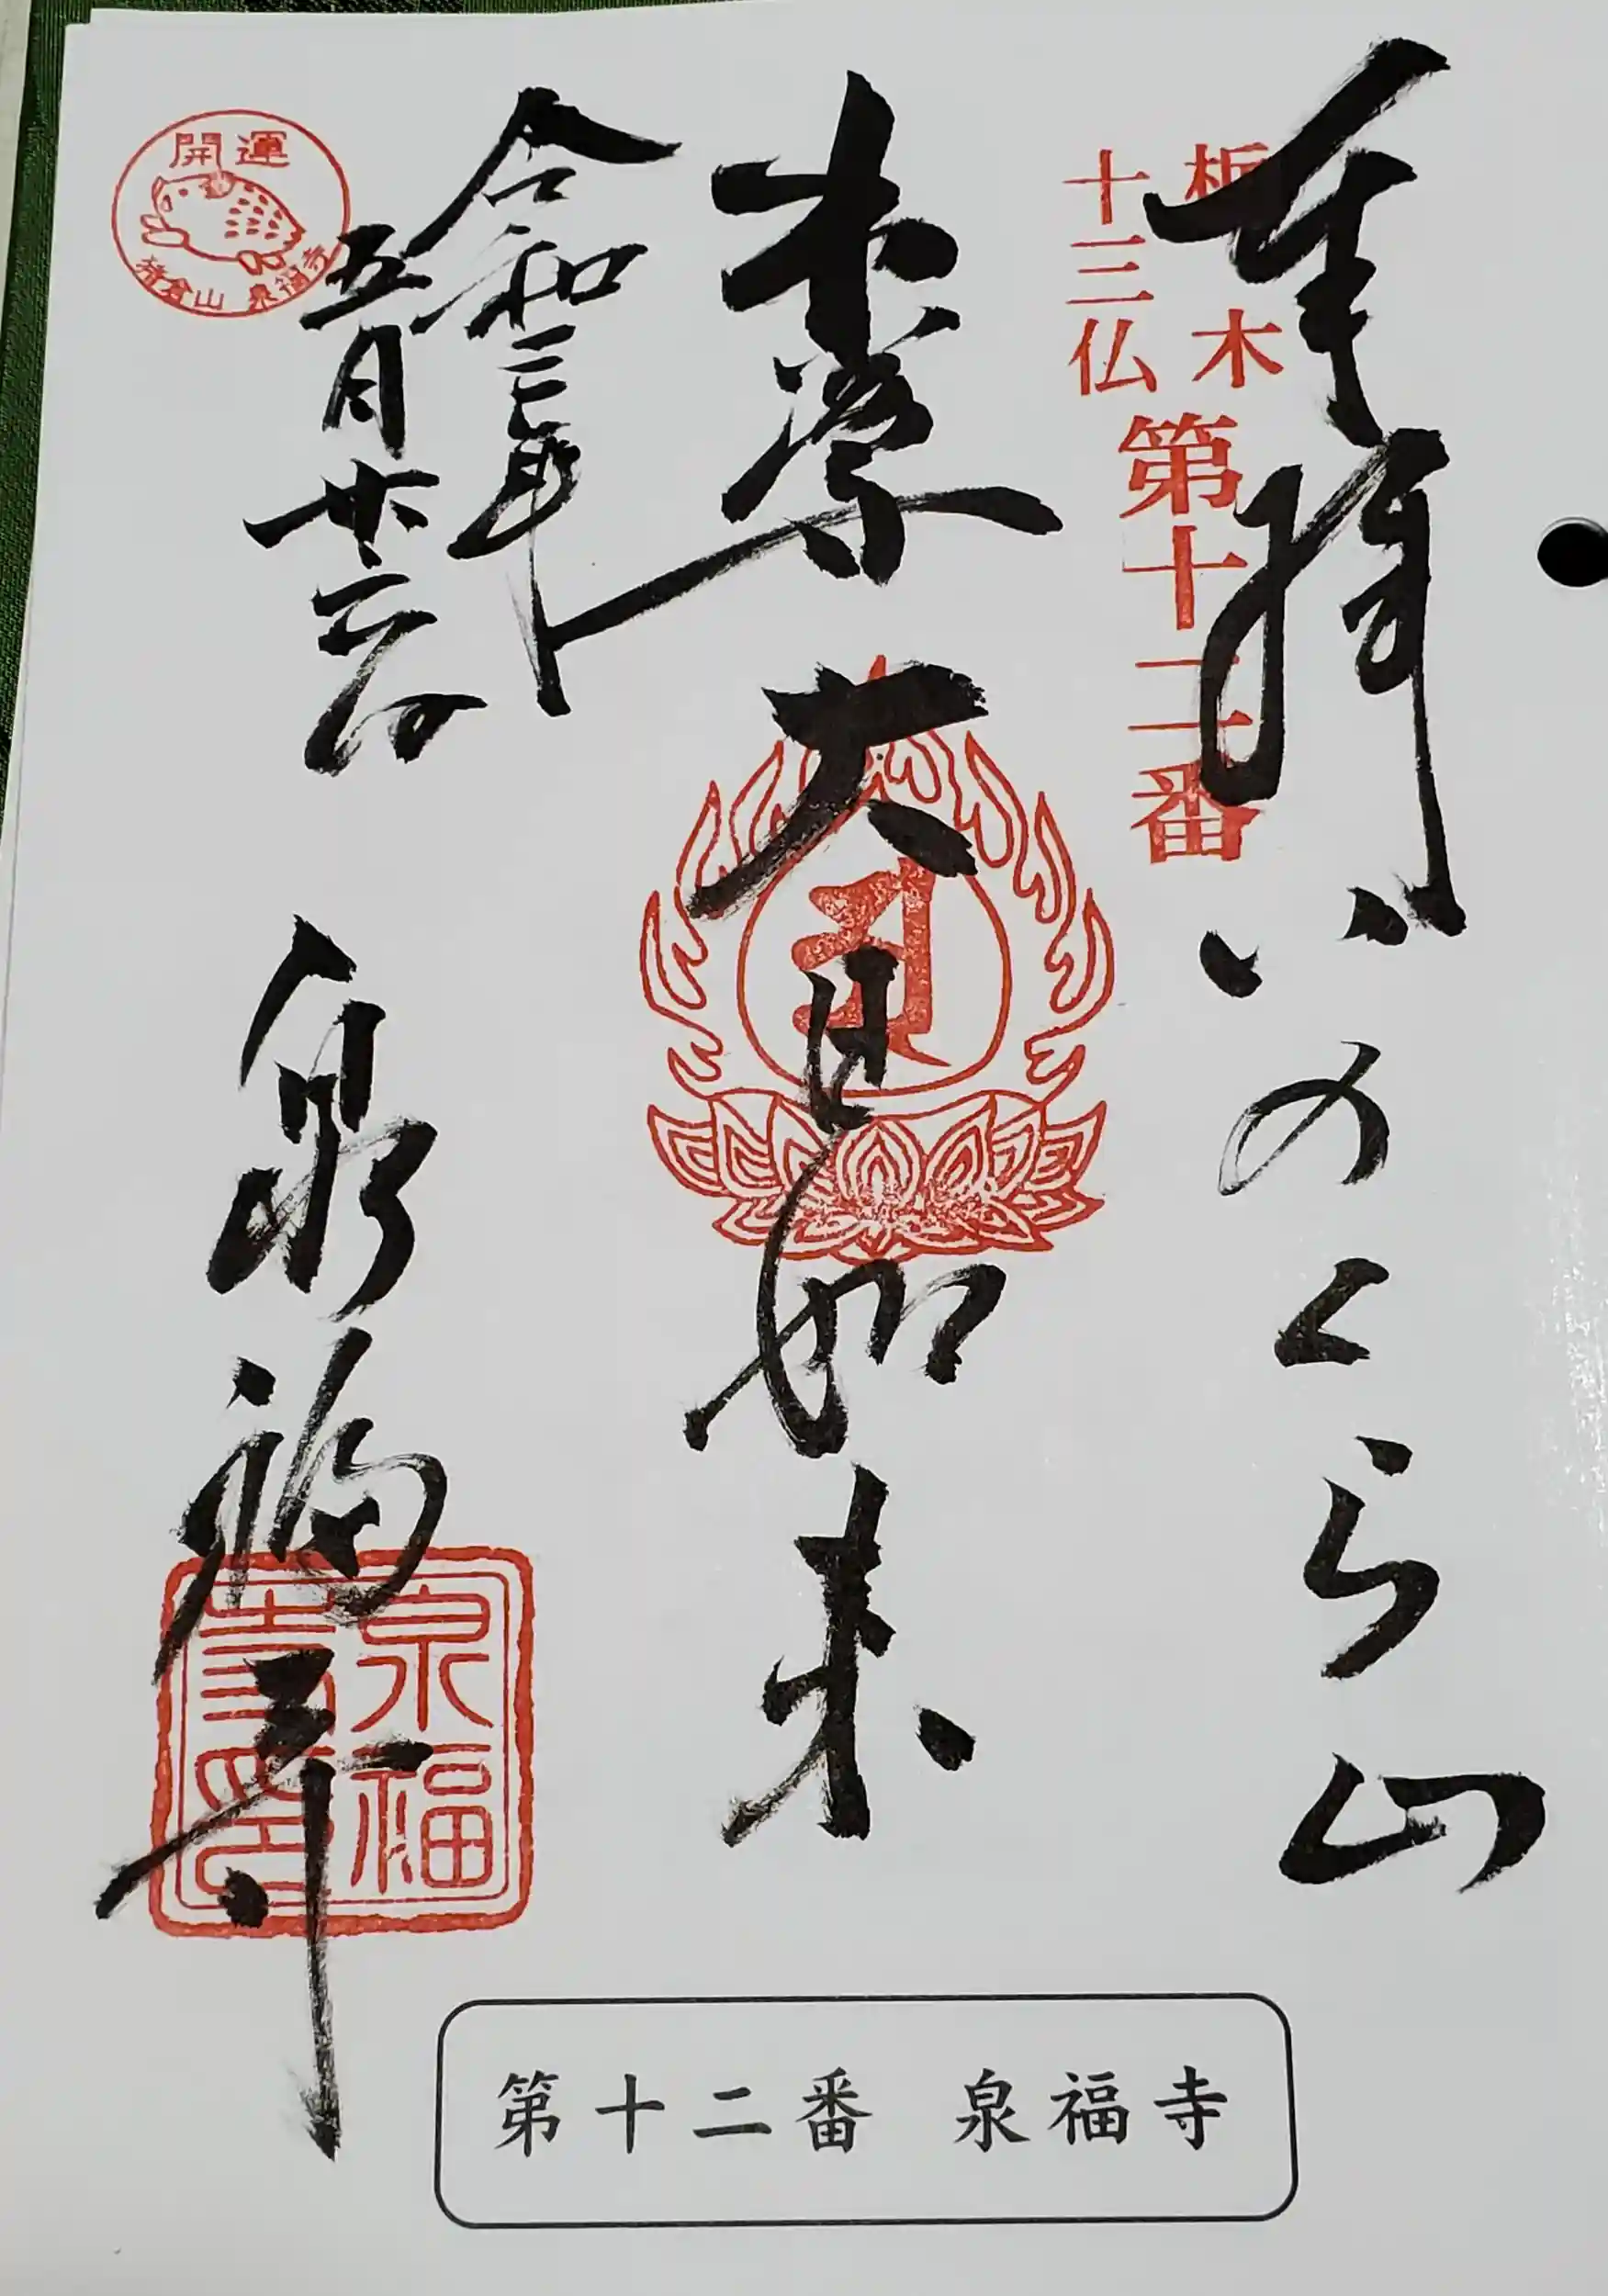 奉拝 いのくら山
栃木
十三仏
第十二番
大日如来
令和三年
五月廿六日
泉福寺
開運
猪倉山 泉福寺
泉福
寺印
第十二番 泉福寺